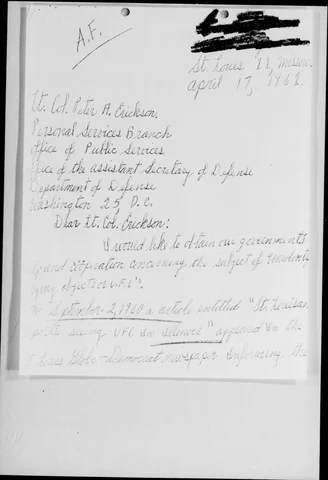 A.F.
St. Louis 21, Missouri
April 17, 1961
Lt. Col. Peter A. Erickson,
Personal Services Branch
Office of Public Services
Office of the assistant Secretary of Defense
Department of Defense
Washington 25, D.C.
Dear Lt. Col. Erickson:
I would like to obtain our governments
and information concerning the subject of
flying objects or U.F.O.
September 2, 1960 a article entitled "St. Louisan
seeing UFO in Illinois" appeared in the
Louis Globe-Democrat newspaper informing the